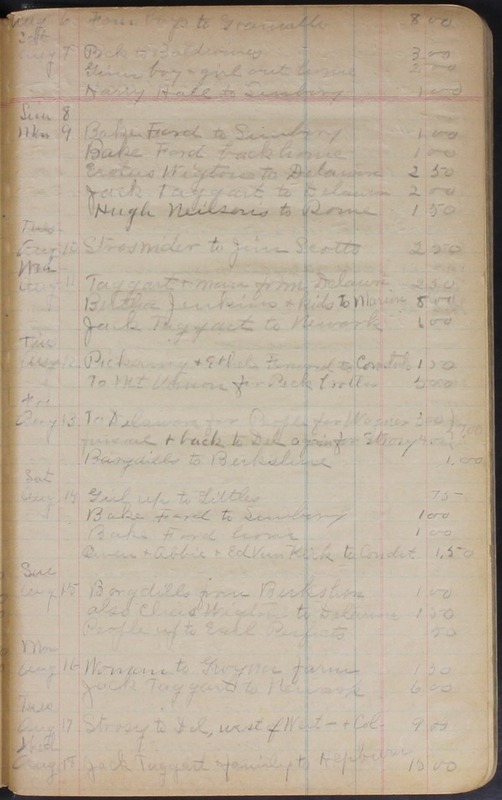 Aug 6 Four boys to Granville 8 00
Sat
Aug 7 Peck + Baldwines 3 00
boy + girl out home 2 00
Harry Hall to Sunbury 1 00
Sun 8
Mon 9 Bake Ford to Sunbury 1 00
Bake Ford back home 1 00
Wigtons to Delawn 2 50
Jack Taggart to Delawn 2 00
Hugh Neilsons to Rome 1 50
Tues
Aug 10 Strosnider to Jim Scotts 2 50
Wed
Aug 11 Taggart + man from Delawn 2 50
Jenkins + kids to Marion 5 00
Jack Taggart to Newark 6 00
Pickering + Ethel to 1 50
To Mt Vernon for Peck 5 00
Fri
Aug 13 To Delawn for People for Wagner 3 00
funeral + back to Del again for Strosy 4 00
Bargdills to Berkshire 1,00
Sat
Aug 14 Girl up to Littles 75
Bake Ford to Sunbury 1 00
Bake Ford home 1 00
Owen + Abbie + Ed to Condit 1,50
Aug 15 Borgdills from Berkshire 1 00
also to Delawn 1 50
People up to Earl 50
Mon
Aug 16 Woman to farm 1 50
Jack Taggart to Newark 6 00
Tues
Aug 17 Strosy to Del, west of West - + Col- 9 00
Wed
Aug 18 Jack Taggart + family to Hepburn 15 00